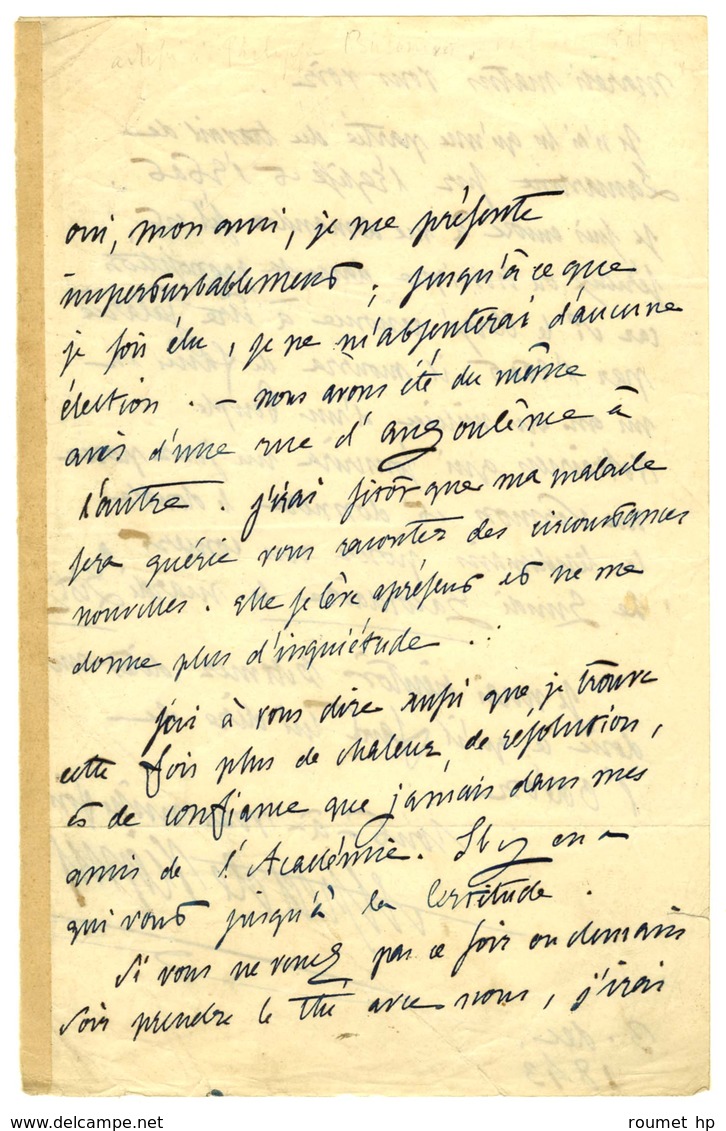 oui, mon ami, je me présente
imperturbablement ; jusqu'à ce que
je sois élu, je ne m'absenterai d'aucune
élection. — nous avons été du même
avis d'une rue d'angoulême à
l'autre. j'irai sitôt que ma malade
sera guérie vous raconter des circonstances
nouvelles. elle se lève aprésent et ne me
donne plus d'inquiétude. .
j'ai à vous dire aussi que je trouve
cette fois plus de chaleur, de résolution,
et de confiance que jamais dans mes
amis de l'Académie. Il y en a
qui vont jusqu'à la Certitude.
Si vous ne venez pas ce soir ou demain
soir prendre le thé avec nous, j'irai
roumet hp